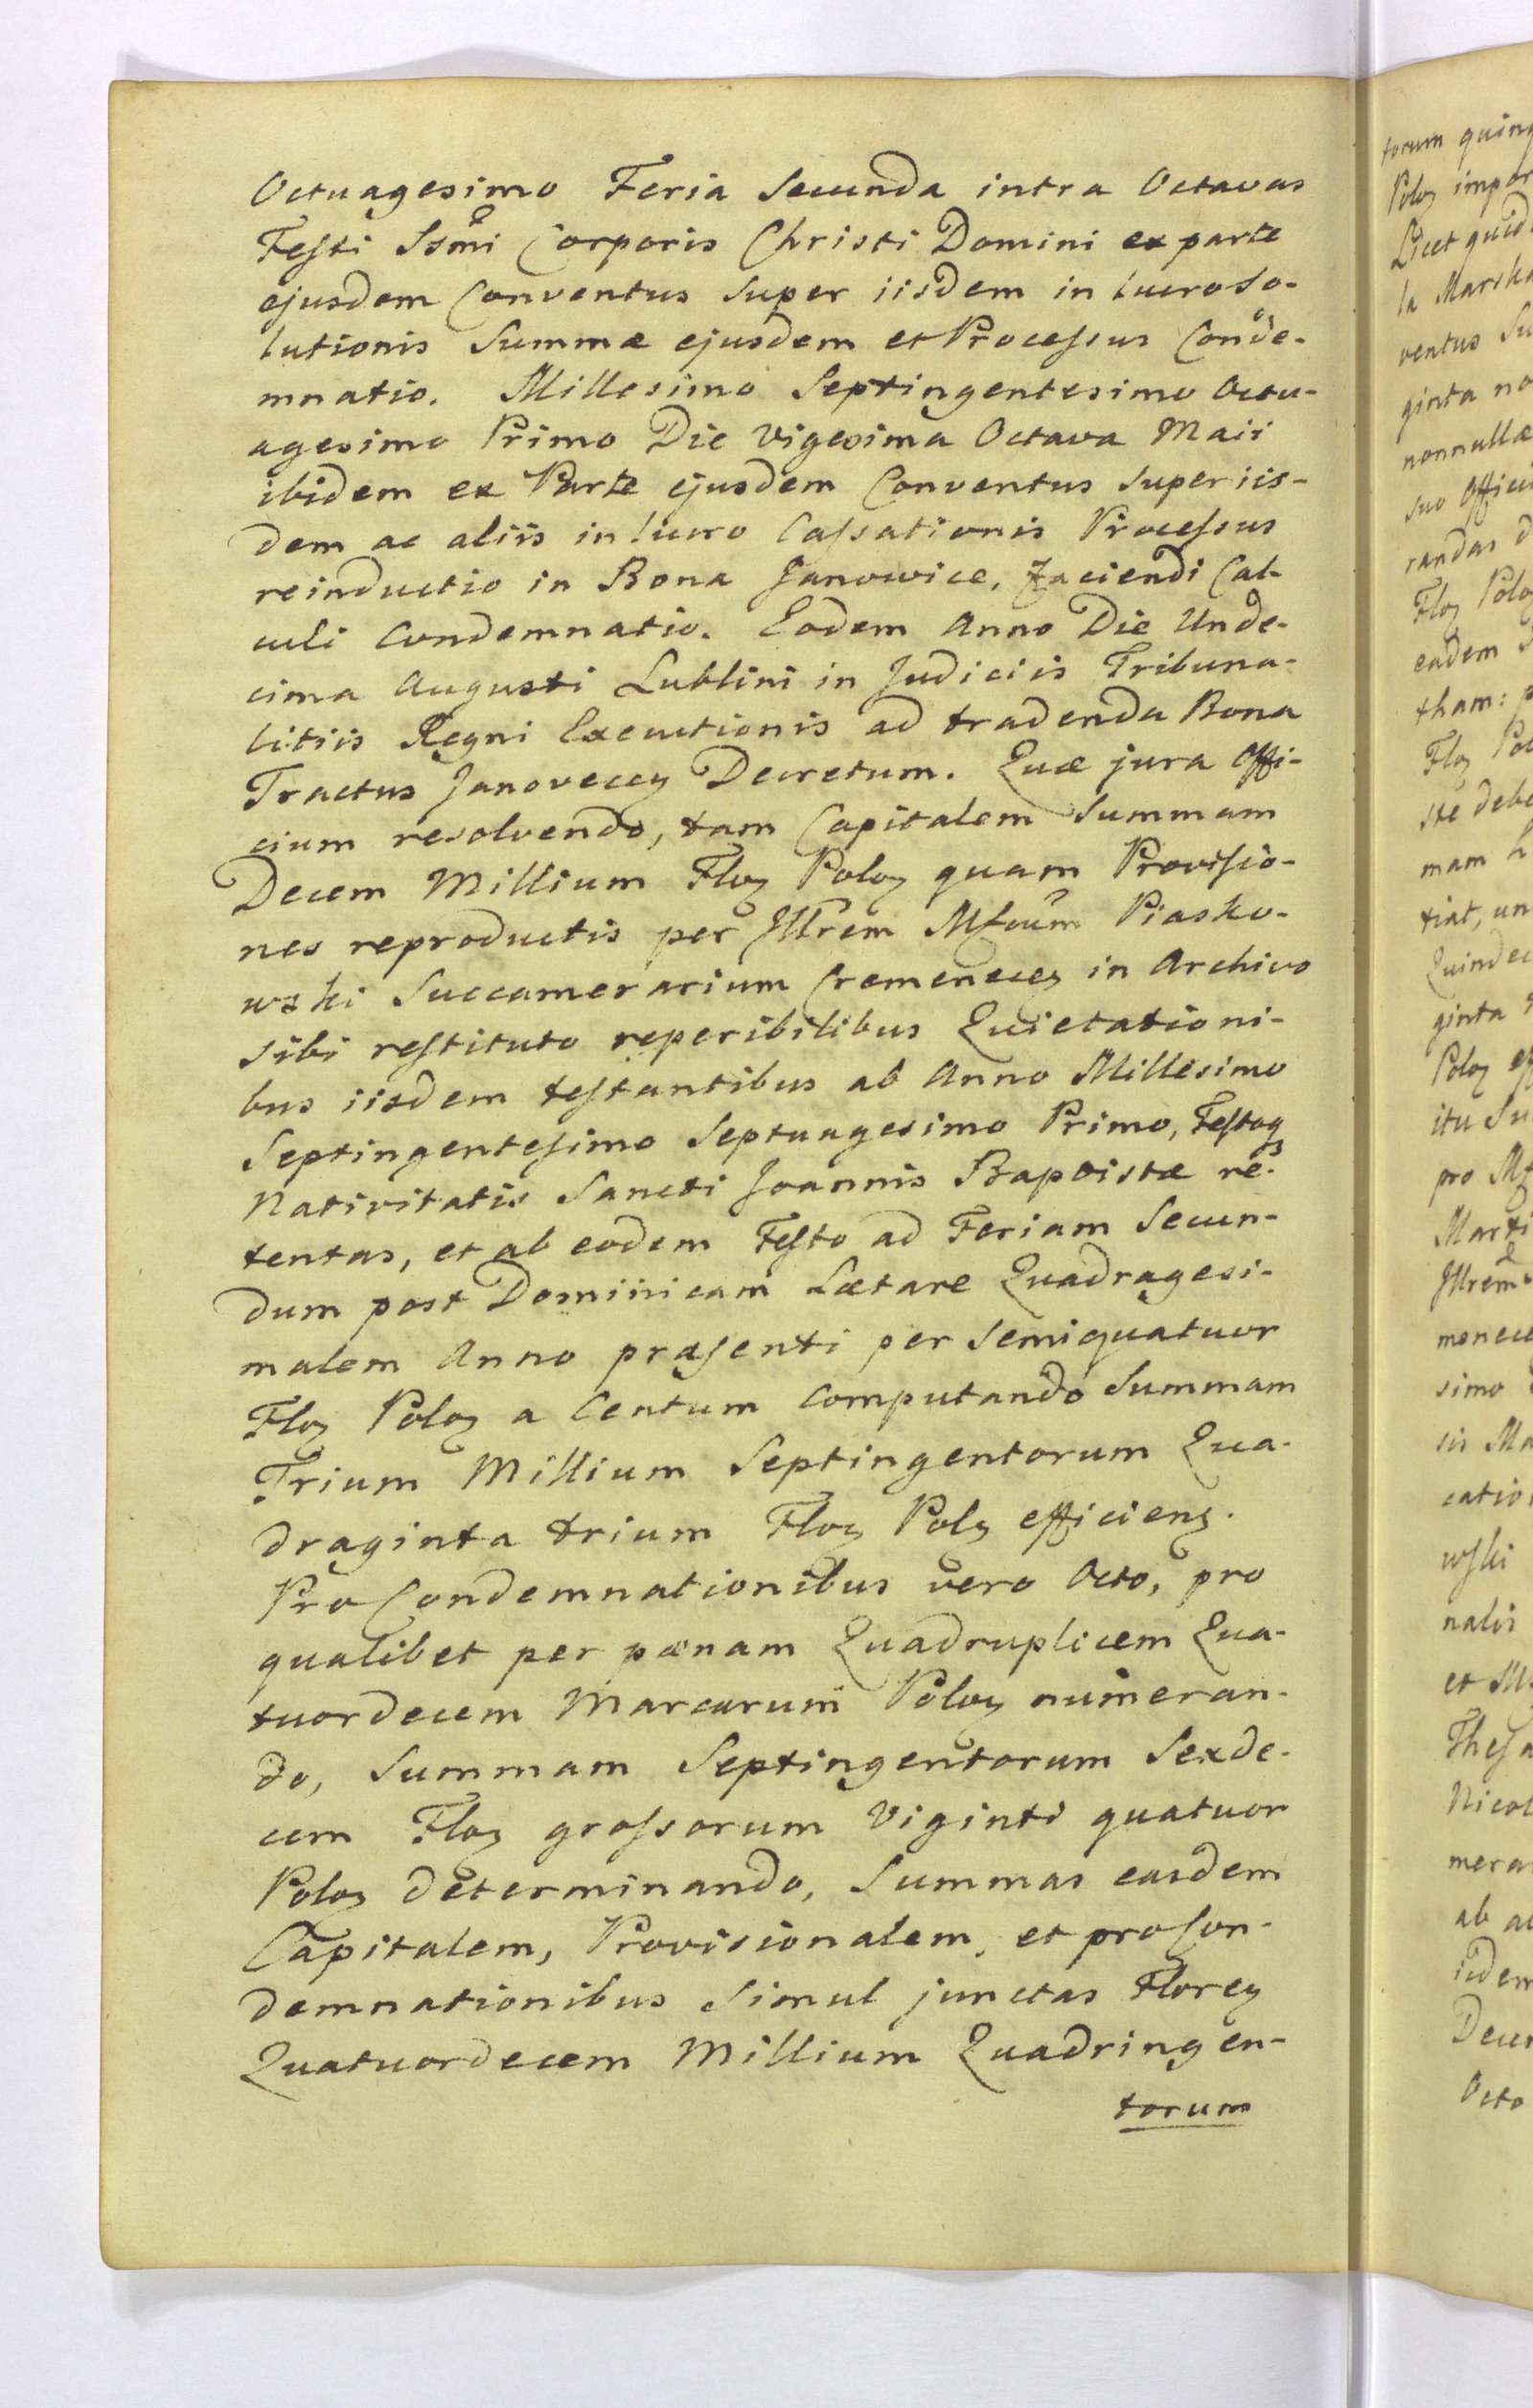 Octuagesimo Feria Secunda intra Octavas
Festi Ssmi Corporis Christi Domini ex parte
ejusdem Conventus super iisdem in lucro so-
lutionis Summæ ejusdem et Processus Conde-
mnatio. Millesimo Septingentesimo Octu-
agesimo Primo Die Vigesima Octava Maii
ibidem ex Parte ejusdem Conventus super iis-
dem ac aliis in lucro Cassationis Processus
reinductio in Bona Janowice, faciendi Cal-
culi Condemnatio. Eodem Anno Die Unde-
cima Augusti Lublini in Judiciis Tribuna-
litiis Regni Executionis ad tradenda Bona
Tractus Janovecen Decretum. Quæ jura Offi-
cium resolvendo, tam Capitalem Summam
Decem Millium Floꝝ Poloꝝ quam Provisio-
nes reproductis per Jllrem Mfcum Piasko-
wski Succamerarium Cremenecen in Archivo
sibi restituto reperibilibus Quietationi-
bus iisdem testantibus ab Anno Millesimo
Septingentesimo Septuagesimo Primo, Festoq
Nativitatis Sancti Joannis Baptistæ re-
tentas, et ab eodem Festo ad Feriam Secun-
dum post Dominicam Lætare Quadragesi-
malem Anno præsenti per semiquatuor
Floꝝ Poloꝝ a Centum computando Summam
Trium Millium Septingentorum Qua-
draginta trium Floꝝ Polꝝ efficienꝫ.
Pro Condemnationibus vero Octo, pro
qualibet per pænam Quadruplicem Qua-
tuordecem Marcarum Poloꝝ numeran-
do, Summam Septingentorum Sexde-
cem Floꝝ grossorum Viginti quatuor
Poloꝝ determinando, Summas easdem
Capitalem, Provisionalem, et pro Con-
demnationibus simul junctas Floreꝝ
Quatuordecem Millium Quadringen-
torum